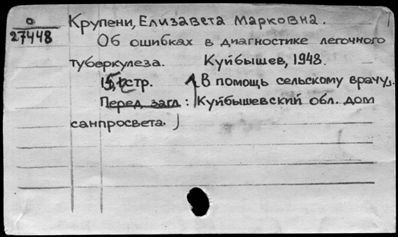 0
27448
Крупени, Елизавета Марковна.
Об ошибках в диагностике легочного
туберкулеза. Куйбышев, 1948.
стр. В помощь сельскому врачу.
Перед загл: Куйбышевский обл. дом
санпросвета.)